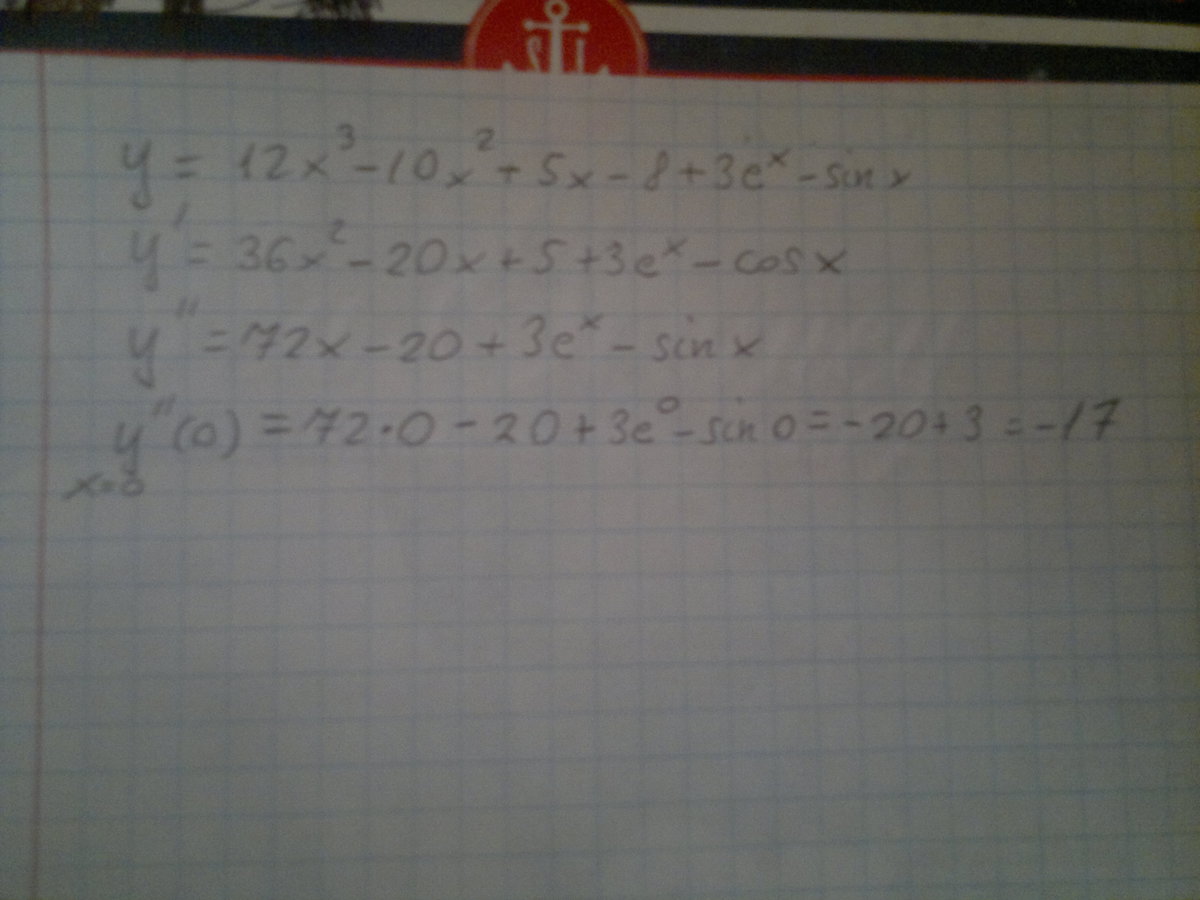 y = 12x³ - 10x² + 5x - 8 + 3eˣ - sin x
y' = 36x² - 20x + 5 + 3eˣ - cos x
y'' = 72x - 20 + 3eˣ - sin x
y''(0) = 72·0 - 20 + 3e⁰ - sin 0 = -20 + 3 = -17
x=0